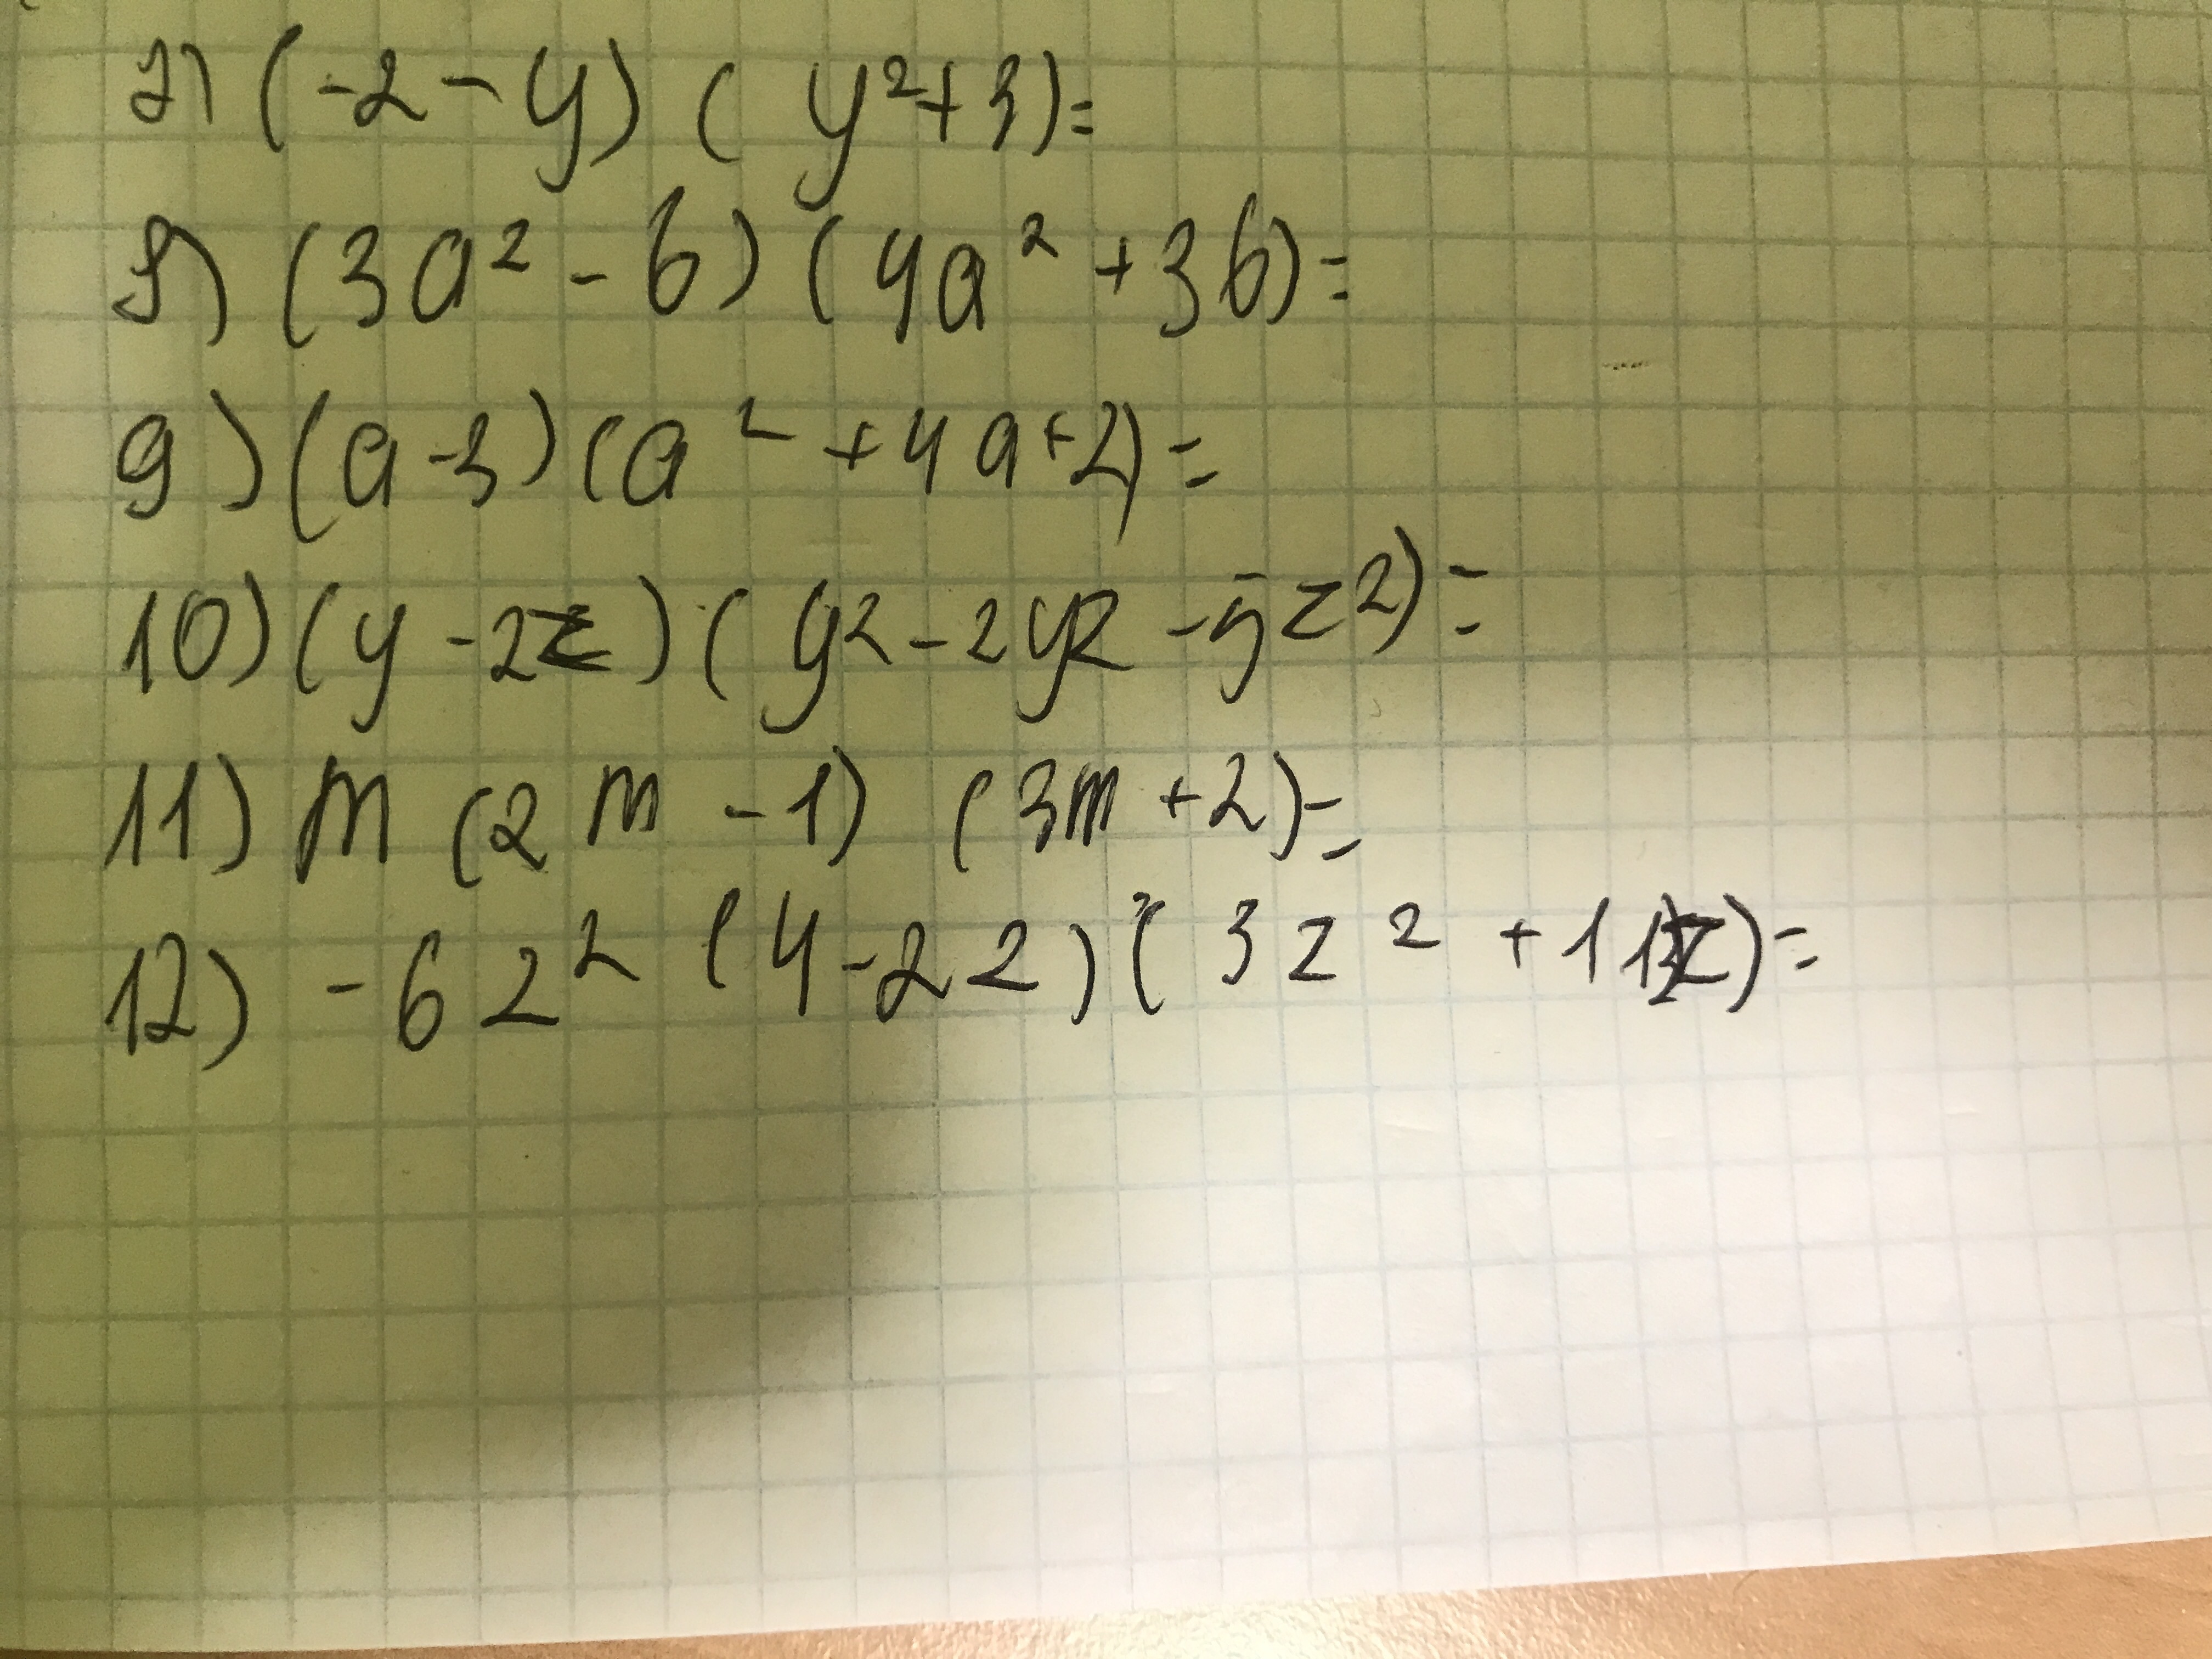 7) (-2-y) (y²+3)=
8) (3a²-b) (4a²+3b)=
9) (a-3) (a²+4a+2)=
10) (y-2z) (y2-2yz-5z2)=
11) m (2m-1) (3m+2)=
12) -6z² (4-2z) (3z²+11z)=